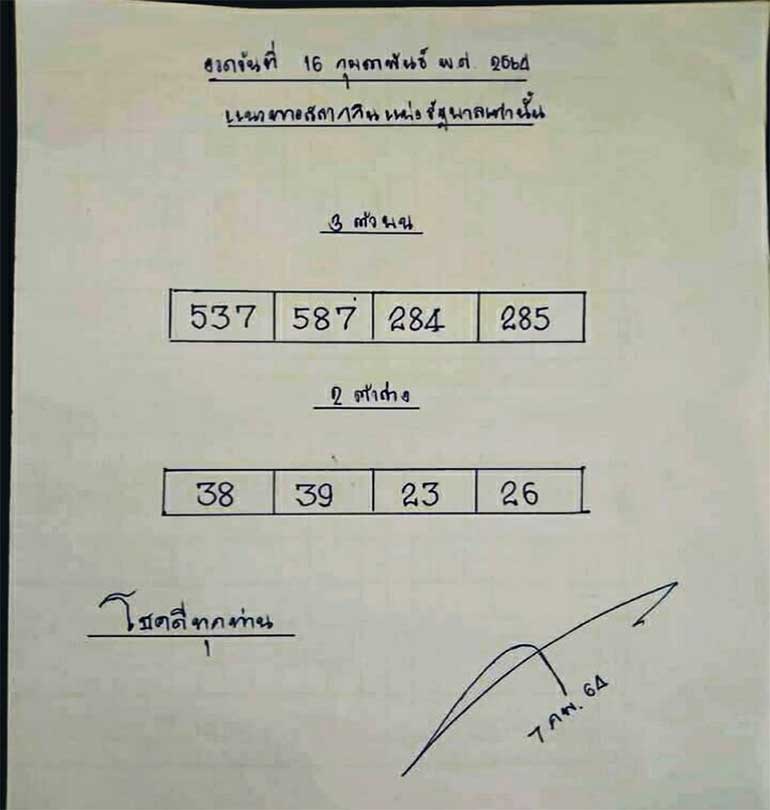 งวดวันที่ 16 กุมภาพันธ์ พ.ศ. 2564
แนวทางสลากกินแบ่งรัฐบาลเท่านั้น
3 ตัวบน
537 587 284 285
2 ตัวล่าง
38 39 23 26
โชคดีทุกท่าน
7 กพ. 64